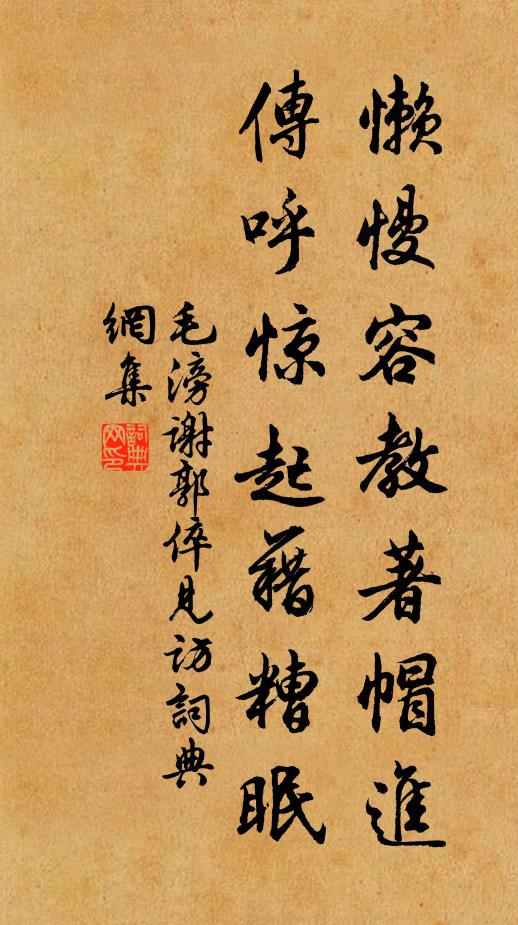 懒慢容教著帽進
傳呼惊起藉糟眠
毛滂謝郭倅見访詞典
網集
詞典
网印